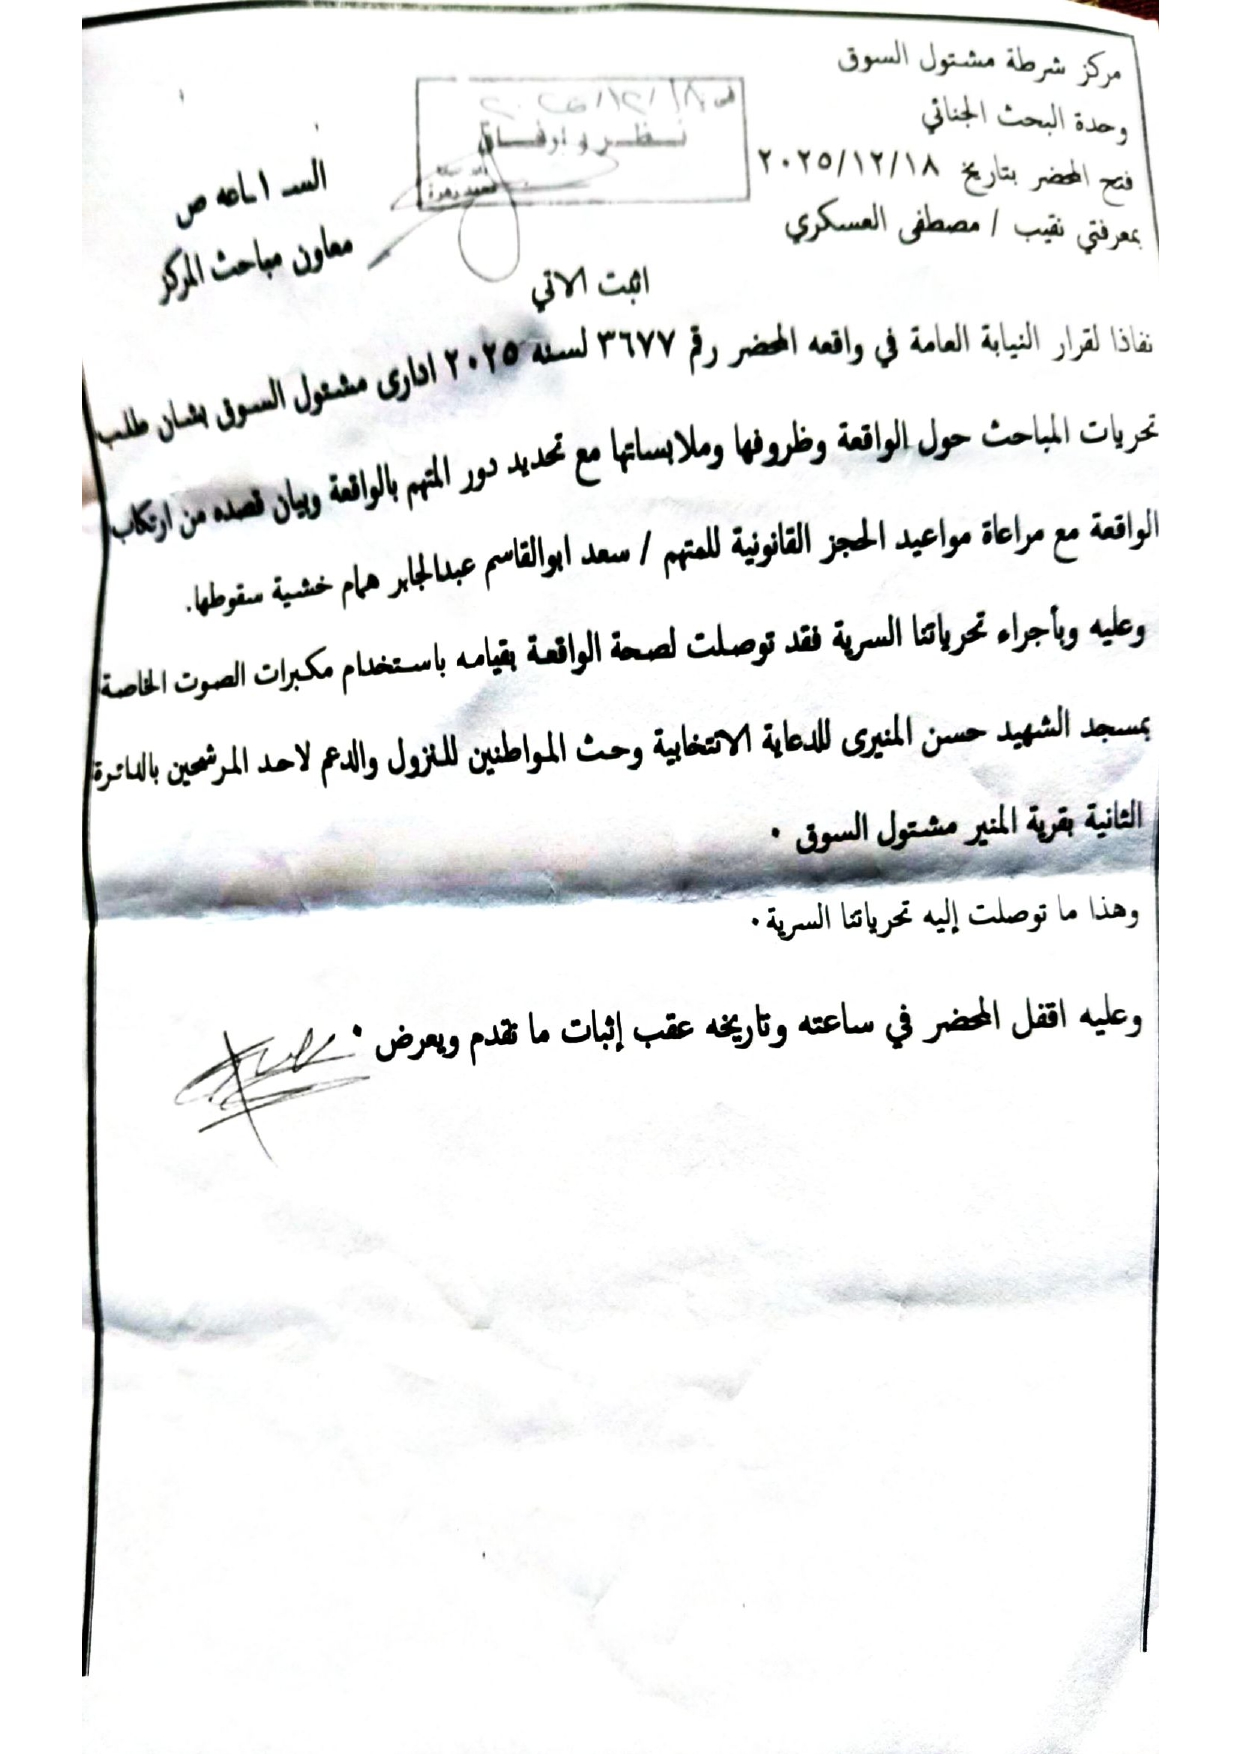 مركز شرطة مشتول السوق
وحدة البحث الجنائي
فتح المحضر بتاريخ ٢٠٢٥/١٢/١٨
الساعه ص
بمعرفتي نقيب / مصطفى العسكري
معاون مباحث المركز
نظر وارفاق
اثبت الاتي
نفاذا لقرار النيابة العامة في واقعه المحضر رقم ٣٦٧٧ لسنه ٢٠٢٥ ادارى مشتول السوق بشان طلب
تحريات المباحث حول الواقعة وظروفها وملابساتها مع تحديد دور المتهم بالواقعة وبيان قصده من ارتكاب
الواقعة مع مراعاة مواعيد الحجز القانونية للمتهم / سعد ابوالقاسم عبدالجابر همام خشية سقوطها.
وعليه وبأجراء تحرياتنا السرية فقد توصلت لصحة الواقعة بقيامه باستخدام مكبرات الصوت الخاصة
بمسجد الشهيد حسن المنيرى للدعاية الانتخابية وحث المواطنين للنزول والدعم لاحد المرشحين بالدائرة
الثانية بقرية المنير مشتول السوق .
وهذا ما توصلت إليه تحرياتنا السرية .
وعليه اقفل المحضر في ساعته وتاريخه عقب إثبات ما تقدم ويعرض .